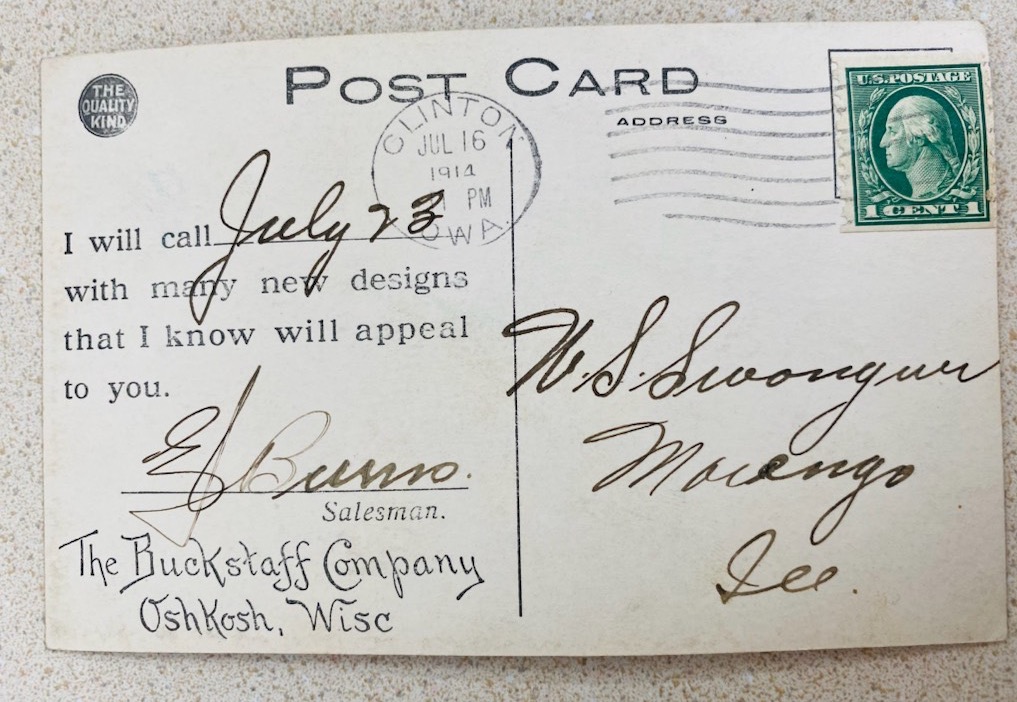 THE
QUALITY
KIND
POST CARD
ADDRESS
U.S. POSTAGE
1 CENT 1
CLINTON
JUL 16
1914
PM
IOWA
I will call July 23
with many new designs
that I know will appeal
to you.
E J Burns.
Salesman.
The Buckstaff Company
Oshkosh, Wisc
W. S. Swonguer
Marengo
Ill.